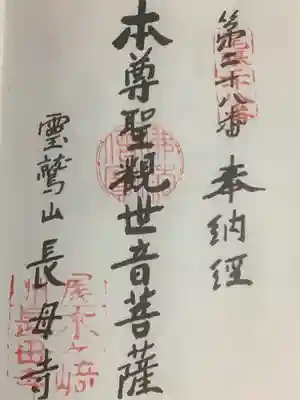 第二十八番 奉納經
本尊聖觀世音菩薩
靈鷲山 長母寺